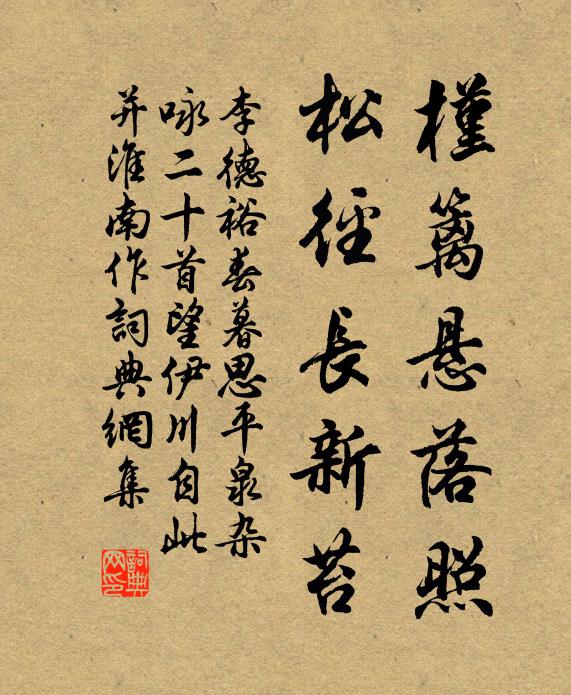 槿篱悬落照
松徑長新苔
李德裕春暮思平泉杂
咏二十首望伊川自此
并淮南作詞典網集
詞典
网印